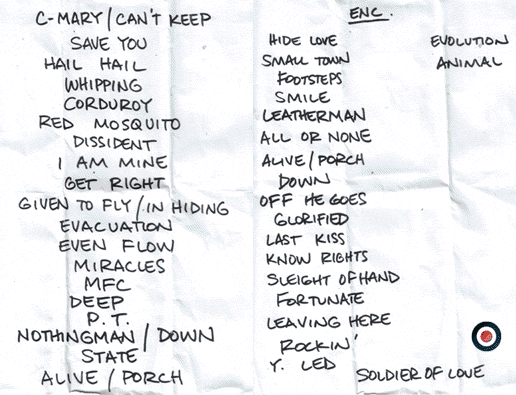 C-MARY/CAN'T KEEP
SAVE YOU
HAIL HAIL
WHIPPING
CORDUROY
RED MOSQUITO
DISSIDENT
I AM MINE
GET RIGHT
GIVEN TO FLY/IN HIDING
EVACUATION
EVEN FLOW
MIRACLES
MFC
DEEP
P.T.
NOTHINGMAN/DOWN
STATE
ALIVE/PORCH
ENC.
HIDE LOVE
SMALL TOWN
FOOTSTEPS
SMILE
LEATHERMAN
ALL OR NONE
ALIVE/PORCH
DOWN
OFF HE GOES
GLORIFIED
LAST KISS
KNOW RIGHTS
SLEIGHT OF HAND
FORTUNATE
LEAVING HERE
ROCKIN'
Y. LED
SOLDIER OF LOVE
EVOLUTION
ANIMAL